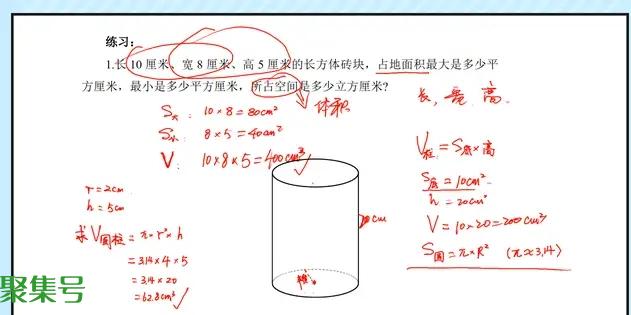 练习：
1.长 10 厘米、宽 8 厘米、高 5 厘米的长方体砖块，占地面积最大是多少平
方厘米，最小是多少平方厘米，所占空间是多少立方厘米？
体积
S大： 10×8=80cm²
S小： 8×5=40cm²
V： 10×8×5=400cm³
长，宽，高
V柱=S底×高
S底=10cm²
h=20cm
V=10×20=200cm³
S圆=π×R² (π≈3.14)
r=2cm
h=5cm
求V圆柱=π×r²×h
=3.14×4×5
=3.14×20
=62.8cm³
cm
聚集号